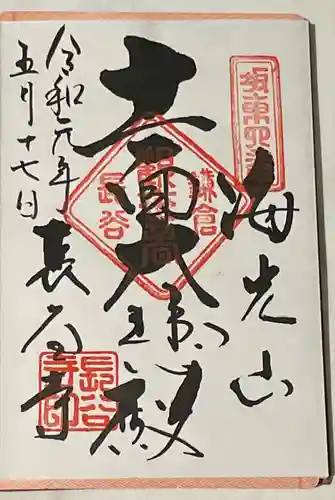 坂東四番
海光山
十一面大悲殿
鎌倉
長谷
長谷寺
令和元年
五月十七日
長谷
寺印